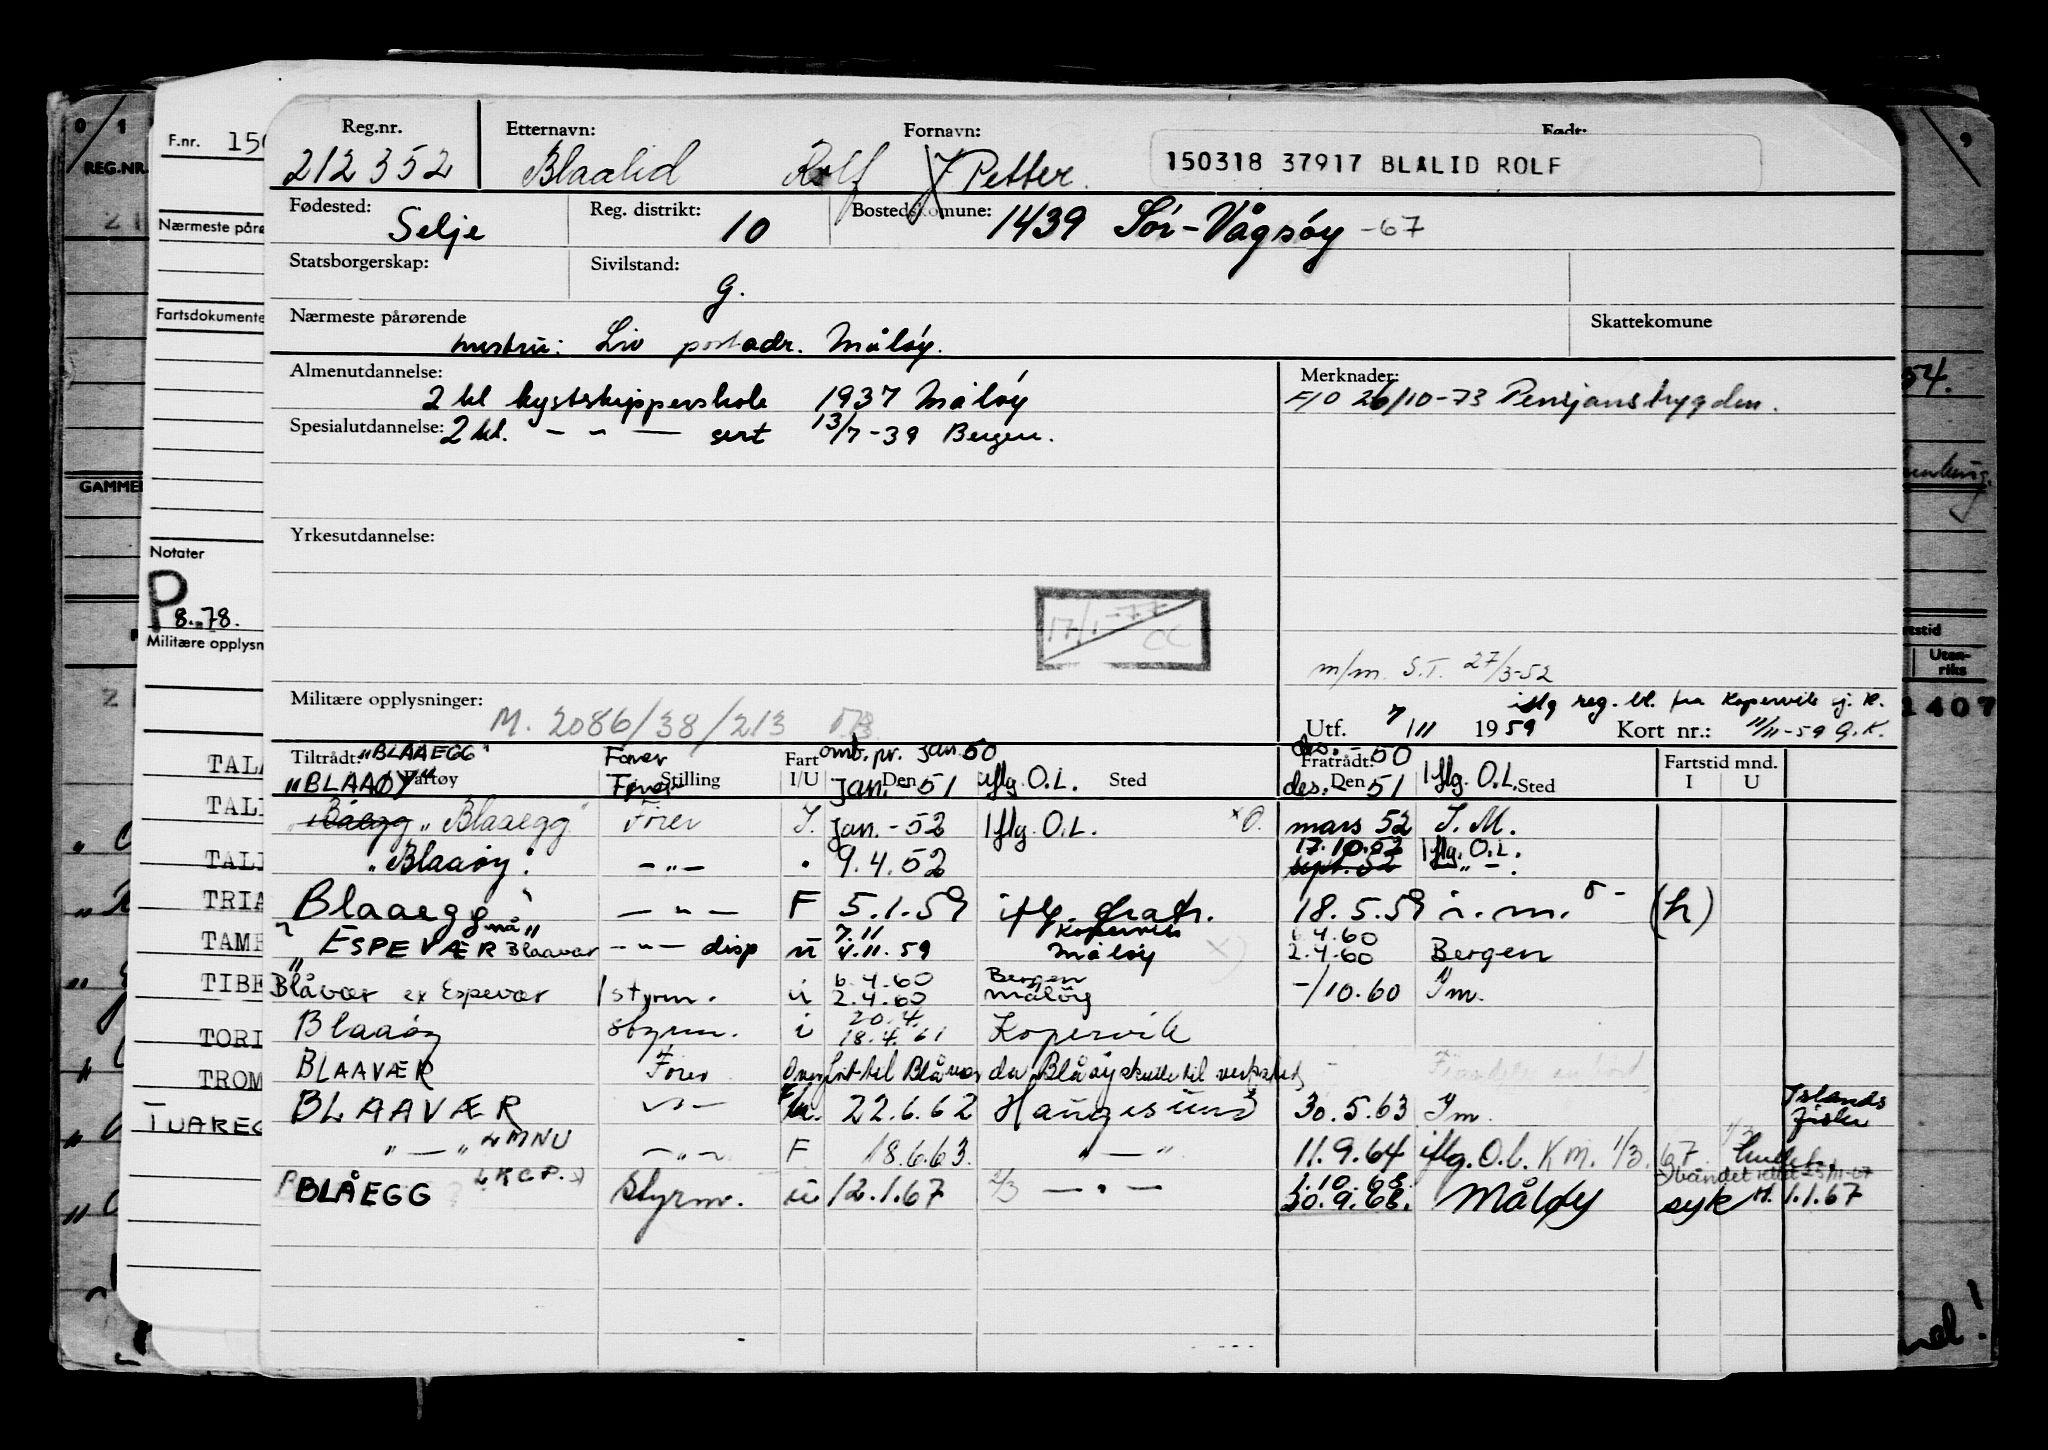 Reg.nr. Etternavn: Fornavn: Født:
212352 Blaalid Rolf Petter. 150318 37917 BLALID ROLF
Fødested: Selje Reg. distrikt: 10 Bostedskomune: 1439 Sør-Vågsøy -67
Statsborgerskap: Sivilstand: g.
Nærmeste pårørende Skattekomune
hustru: Liv postadr. Måløy.
Almenutdannelse: Merknader:
2 kl kystskipperskole 1937 Måløy F/O 26/10-73 Pensjonstrygden.
Spesialutdannelse: 2 kl. - " - sert 13/7-39 Bergen.
Yrkesutdannelse:
17/1-77
CC
m/m. S.T. 27/3-52
Militære opplysninger: M. 2086/38/213 iflg reg. bl. fra Kopervik sj. k.
Utf. 7/11 1959 Kort nr.: 11/11-59 G.K.
Tiltrådt: "BLAAEGG" Fører Fart omb. pr. jan. 50 des. - 50 Fratrådt: Fartstid mnd.
"BLAAØY" Fartøy Fører Stilling I/U jan. Den 51 iflg. O.L. Sted des. - Den 51 iflg. O.L. Sted I U
Blåegg "Blaaegg" Fører I. jan. - 52 iflg. O.L. x O. mars 52 I.M.
"Blaaøy" - " - 9.4.52 17.10.52 sept. 52 iflg. O.L. - " -
Blaaegg - " - F 5.1.59 iflg. 18.5.59 i.m. (h)
"ESPEVÆR nå " Blaavær - " - disp u 7.11 4.11.59 Kopervik Måløy x) 6.4.60 2.4.60 Bergen
Blåvær ex Espevær 1 styrm. u 6.4.60 2.4.60 Bergen Måløy -/10.60 Im.
Blaaøy styrm. i 20.4. 18.4.61 Kopervik
BLAAVÆR Fører Overført til Blåvær da Blåøy skulle til verksted
BLAAVÆR - " - 22.6.62 Haugesund 30.5.63 Im. Islands fiske
" - " LMNU - " - F 18.6.63. " - " 11.9.64 iflg. O.L. KM. 1/3. 67.
BLÅEGG LKGP. Styrm. u 12.1.67 2/3 - " - 1.10.68. 30.9.68. Måløy syk M. 1.1.67
F.nr. 150
Nærmeste pårø
Fartsdokumente
Notater
P
8.-78.
Militære opplysn
0 1
REG.NR.
GAMMEL
TALA
TALI
TALI
TRIA
TAMF
TIBE
TORI
TROM
TUAREG
9
54.
stid
Uten-
riks
1407